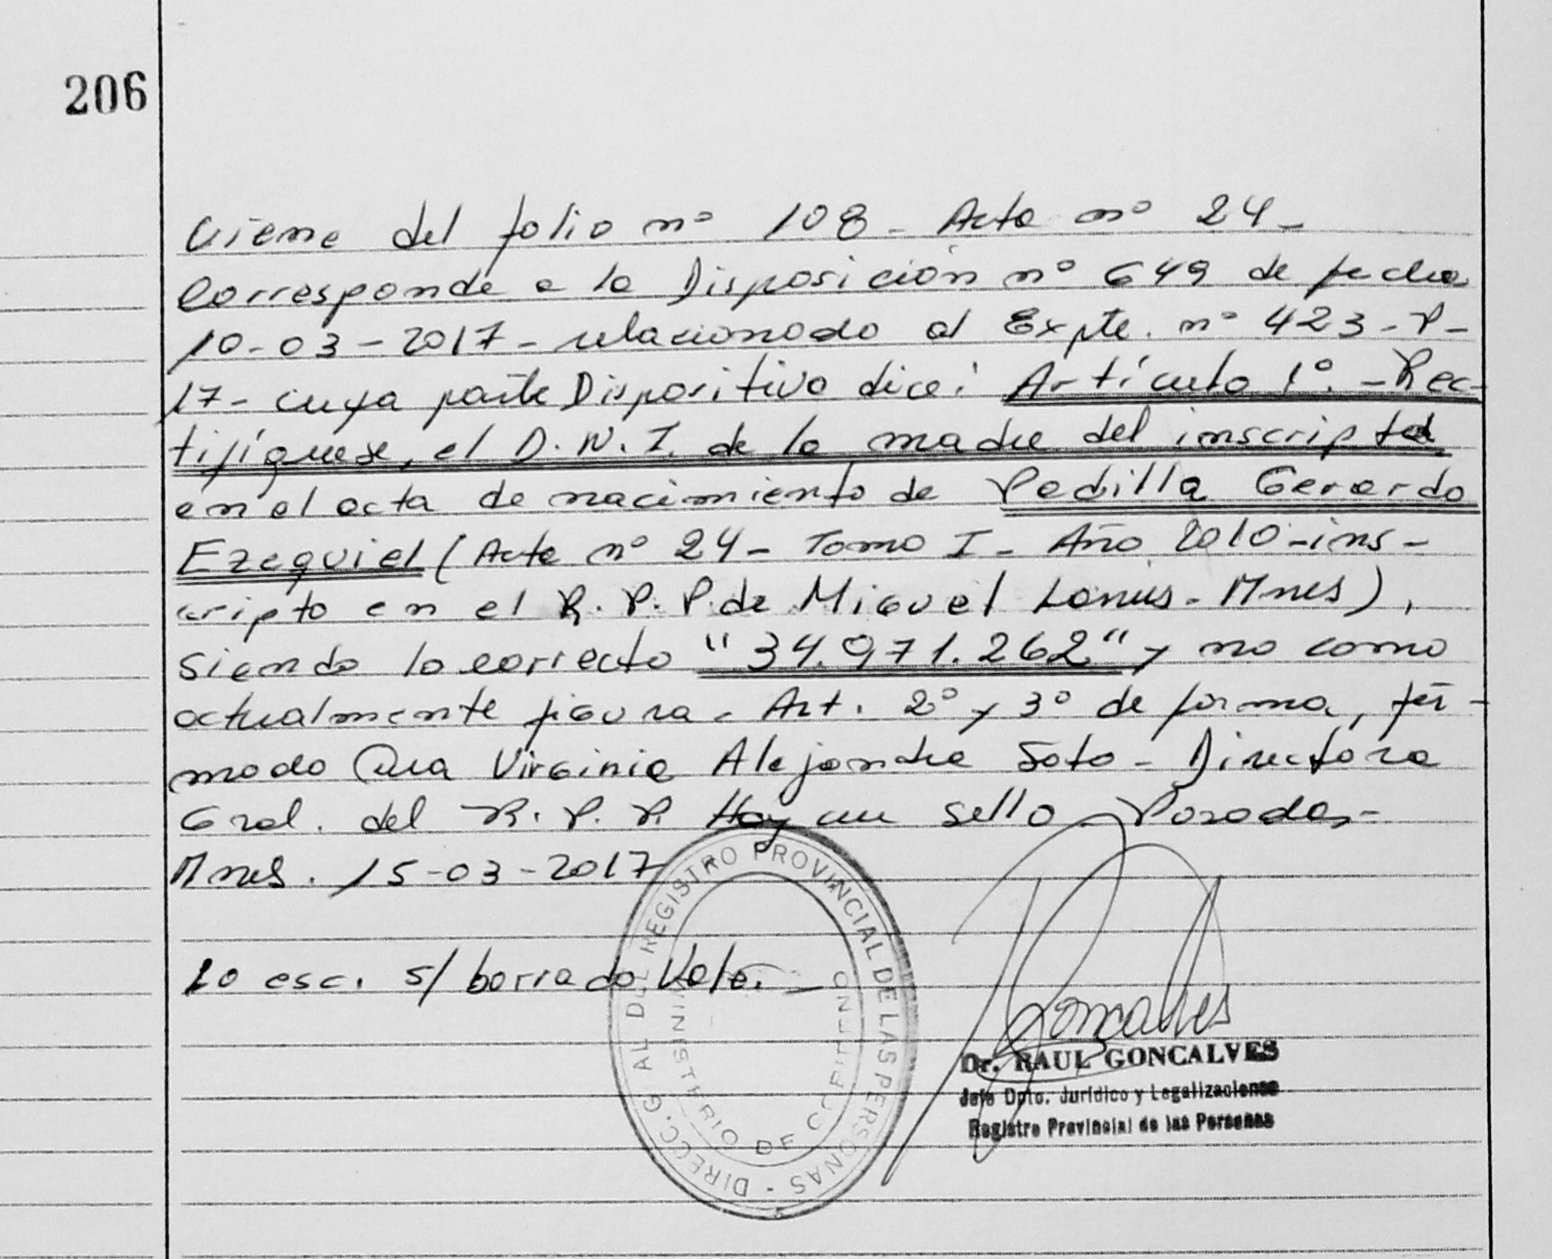 206
Viene del folio nº 108 - Acta nº 24 -
Corresponde a la Disposición nº 649 de fecha
10-03-2017 - relacionado al Expte. nº 423-P-
17- cuya parte Dispositiva dice: Artículo 1º. - Rec-
tifíquese, el D.N.I. de la madre del inscripto
en el acta de nacimiento de Padilla Gerardo
Ezequiel (Acta nº 24 - Tomo I - Año 2010 - ins-
cripto en el R.P.P. de Miguel Lanús - Mnes),
siendo lo correcto "34.971.262" y no como
actualmente figura. Art. 2º y 3º de forma, fir-
mado Dra Virginia Alejandra Soto - Directora
Gral. del R.P.P. Hay un sello - Posadas -
Mnes. 15-03-2017
Lo esc. s/ borrado Vale. -
DIRECC. GRAL DEL REGISTRO PROVINCIAL DE LAS PERSONAS -
MINISTERIO DE GOBIERNO
Goncalves
Dr. RAUL GONCALVES
Jefe Dpto. Jurídico y Legalizaciones
Registro Provincial de las Personas